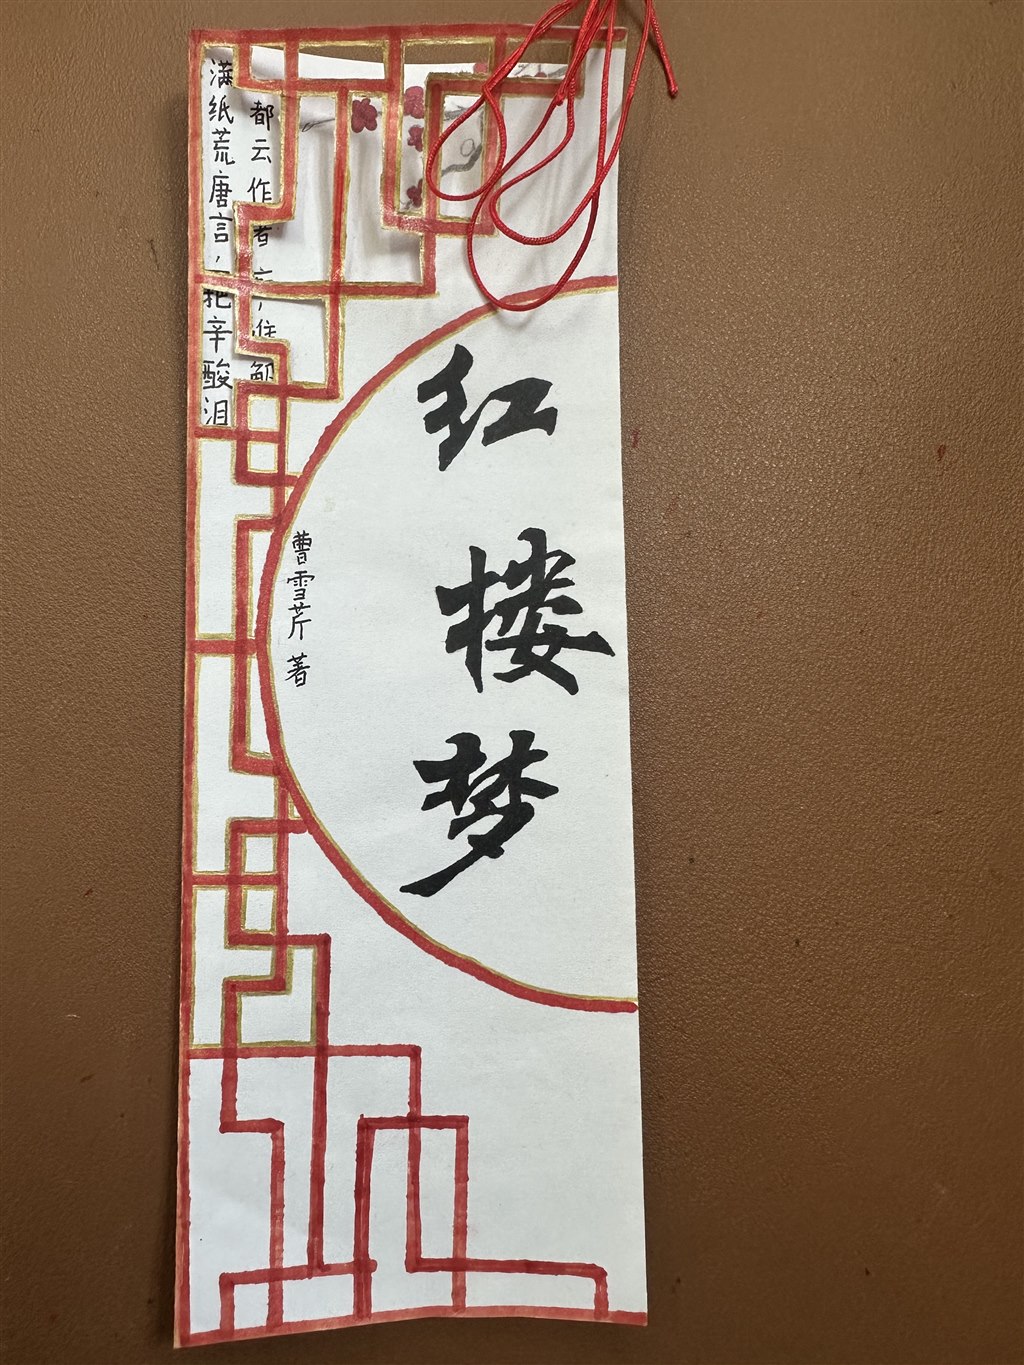 红楼梦
曹雪芹 著
满纸荒唐言，把辛酸泪
都云作者